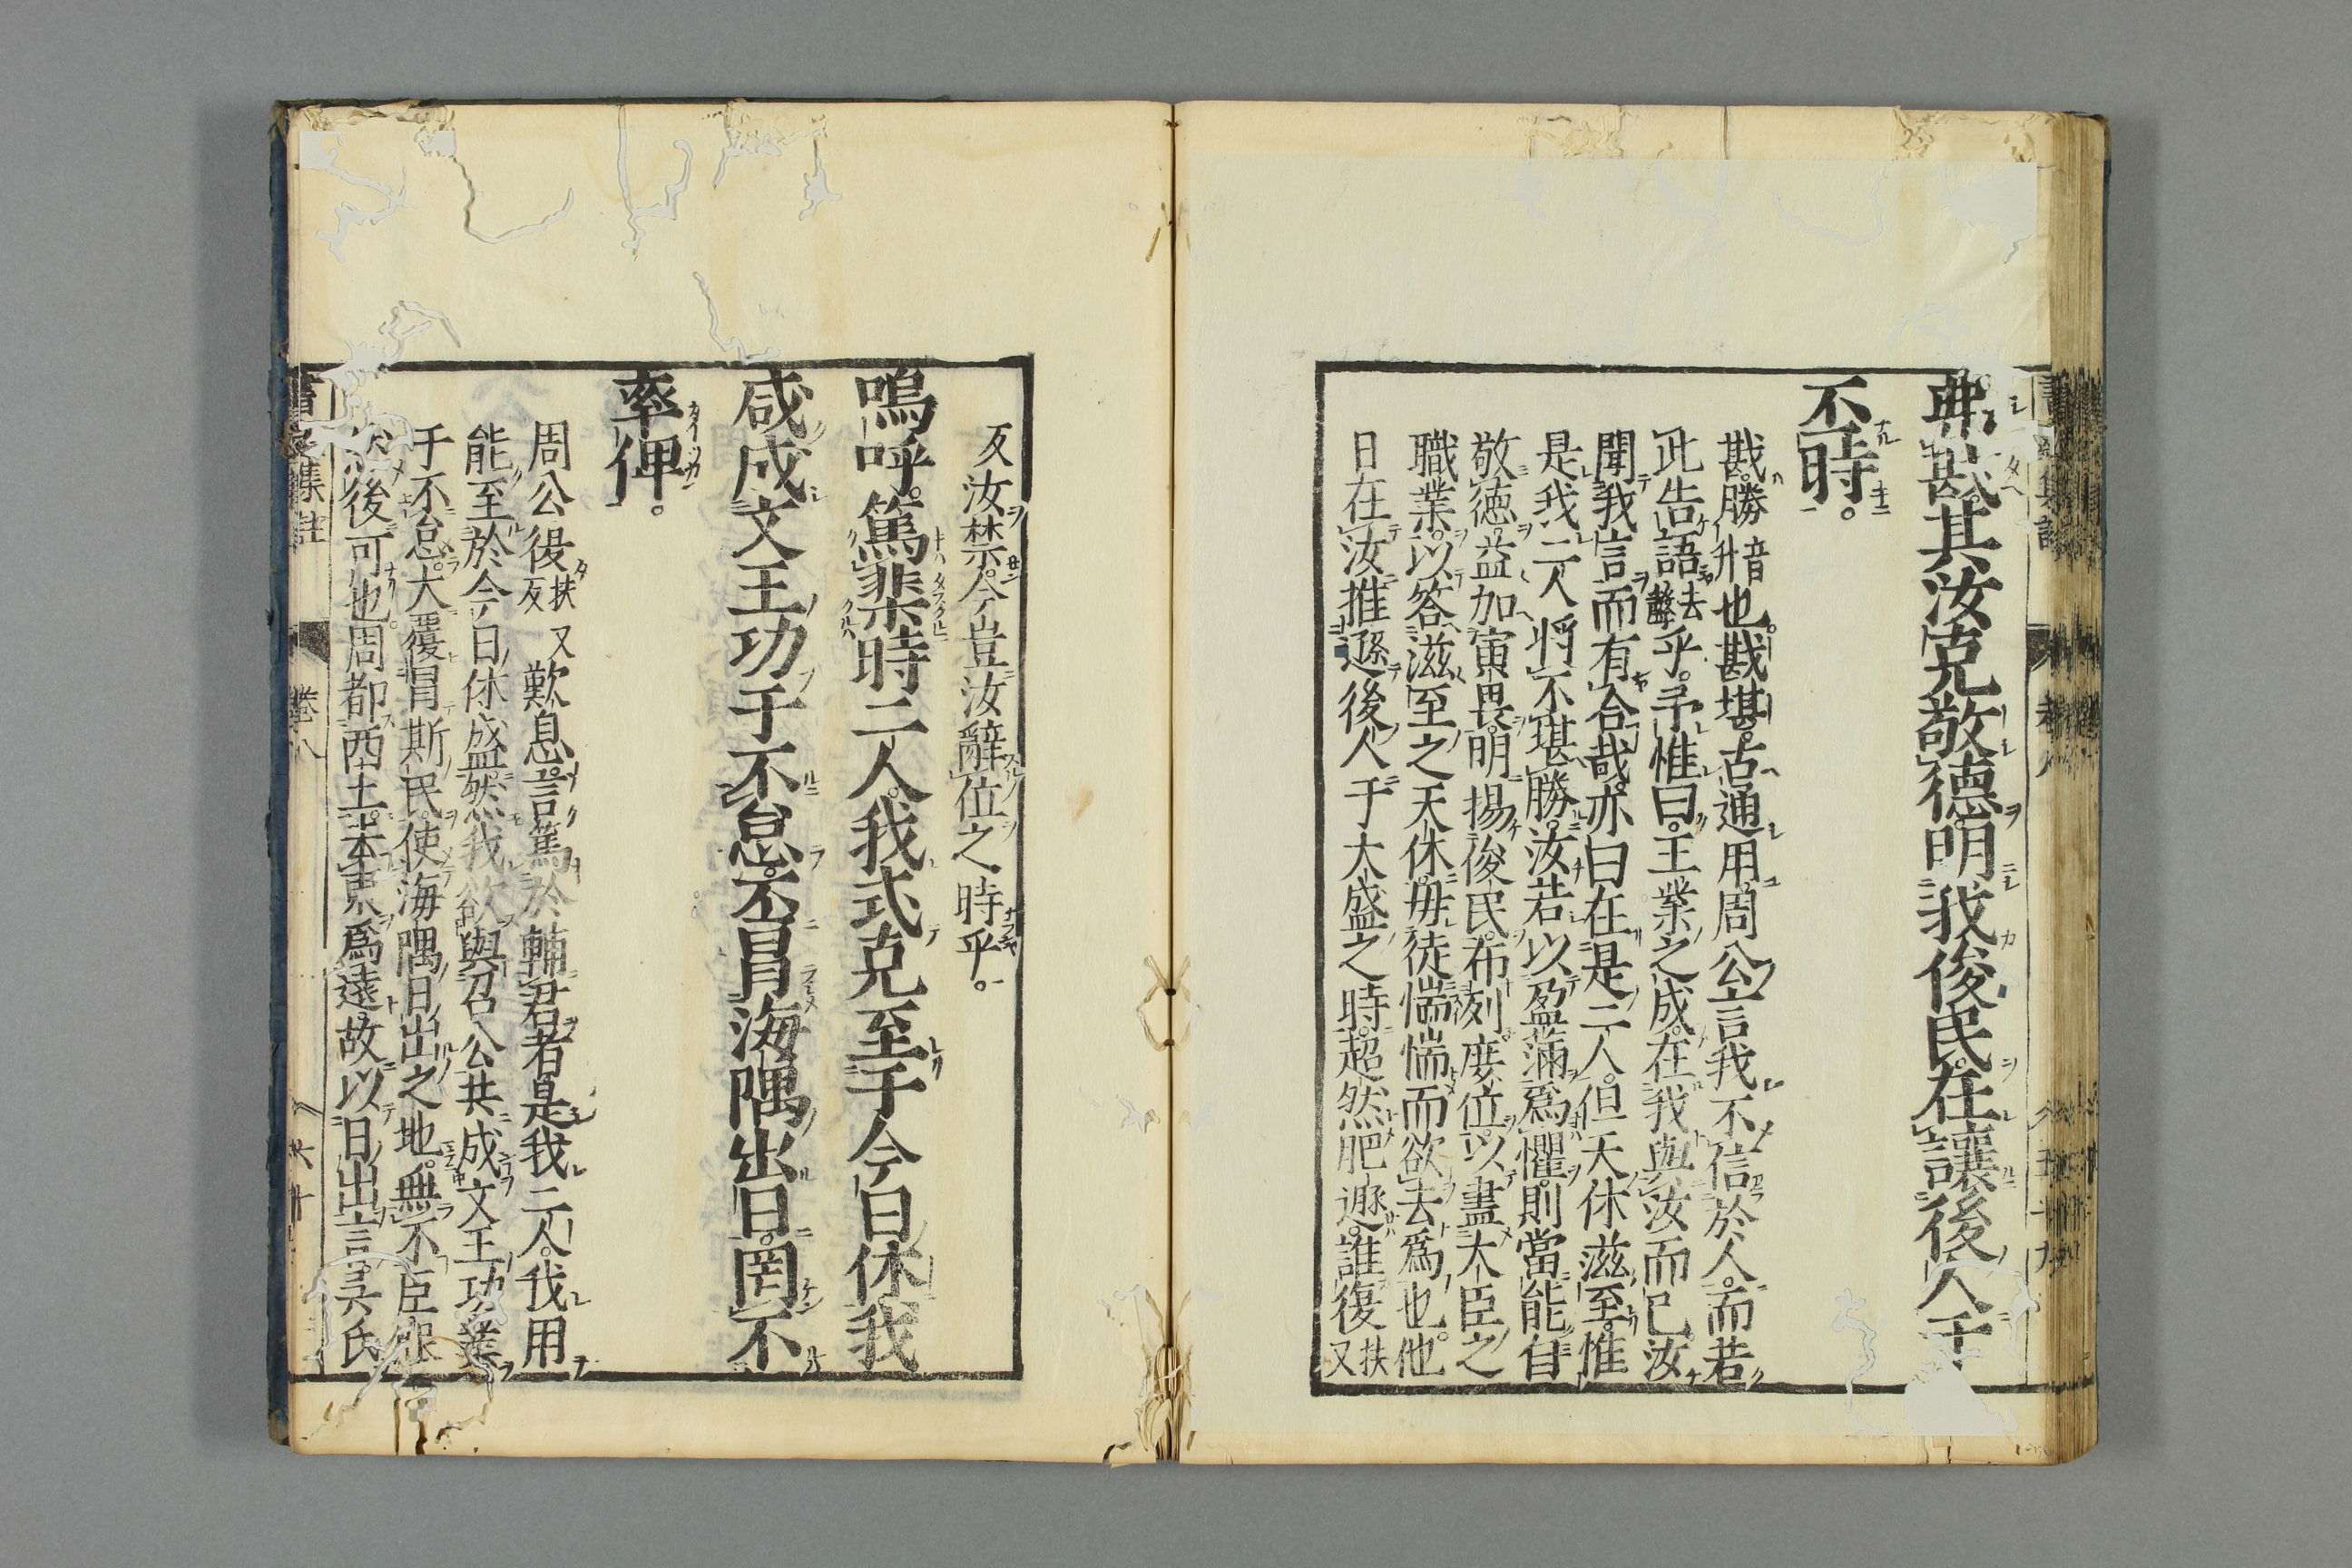 弗戡其汝克敬德明我俊民在讓後人于
丕時。
戡勝升音也。戡堪。古通用周公言我不信於人。而若
此告語去聲乎。予惟曰。王業之成。在我與汝而已汝
聞我言而有合哉。亦曰在是二人。但天休滋至。惟
是我二人將不堪勝。汝若以盈滿爲懼。則當能自
敬德。益加寅畏。明揚俊民。布列庶位。以盡大臣之
職業。以答滋至之天休。毋徒惴惴而欲去爲也。他
日在汝推遜後人于大盛之時。超然肥遯。誰復扶又
反汝禁。今豈汝辭位之時乎。
嗚呼。篤棐時二人。我式克至于今日休。我
咸成文王功于不怠。丕冒海隅出日。罔不
率俾。
周公復扶又反歎息。言篤於輔君者是我二人。我用
能至於今日休盛。然我欲與召公共成文王功業
于不怠。大覆冒斯民。使海隅日出之地。無不臣服
然後可也。周都西土。去東爲遠。故以日出言。吳氏
書 集註
卷八